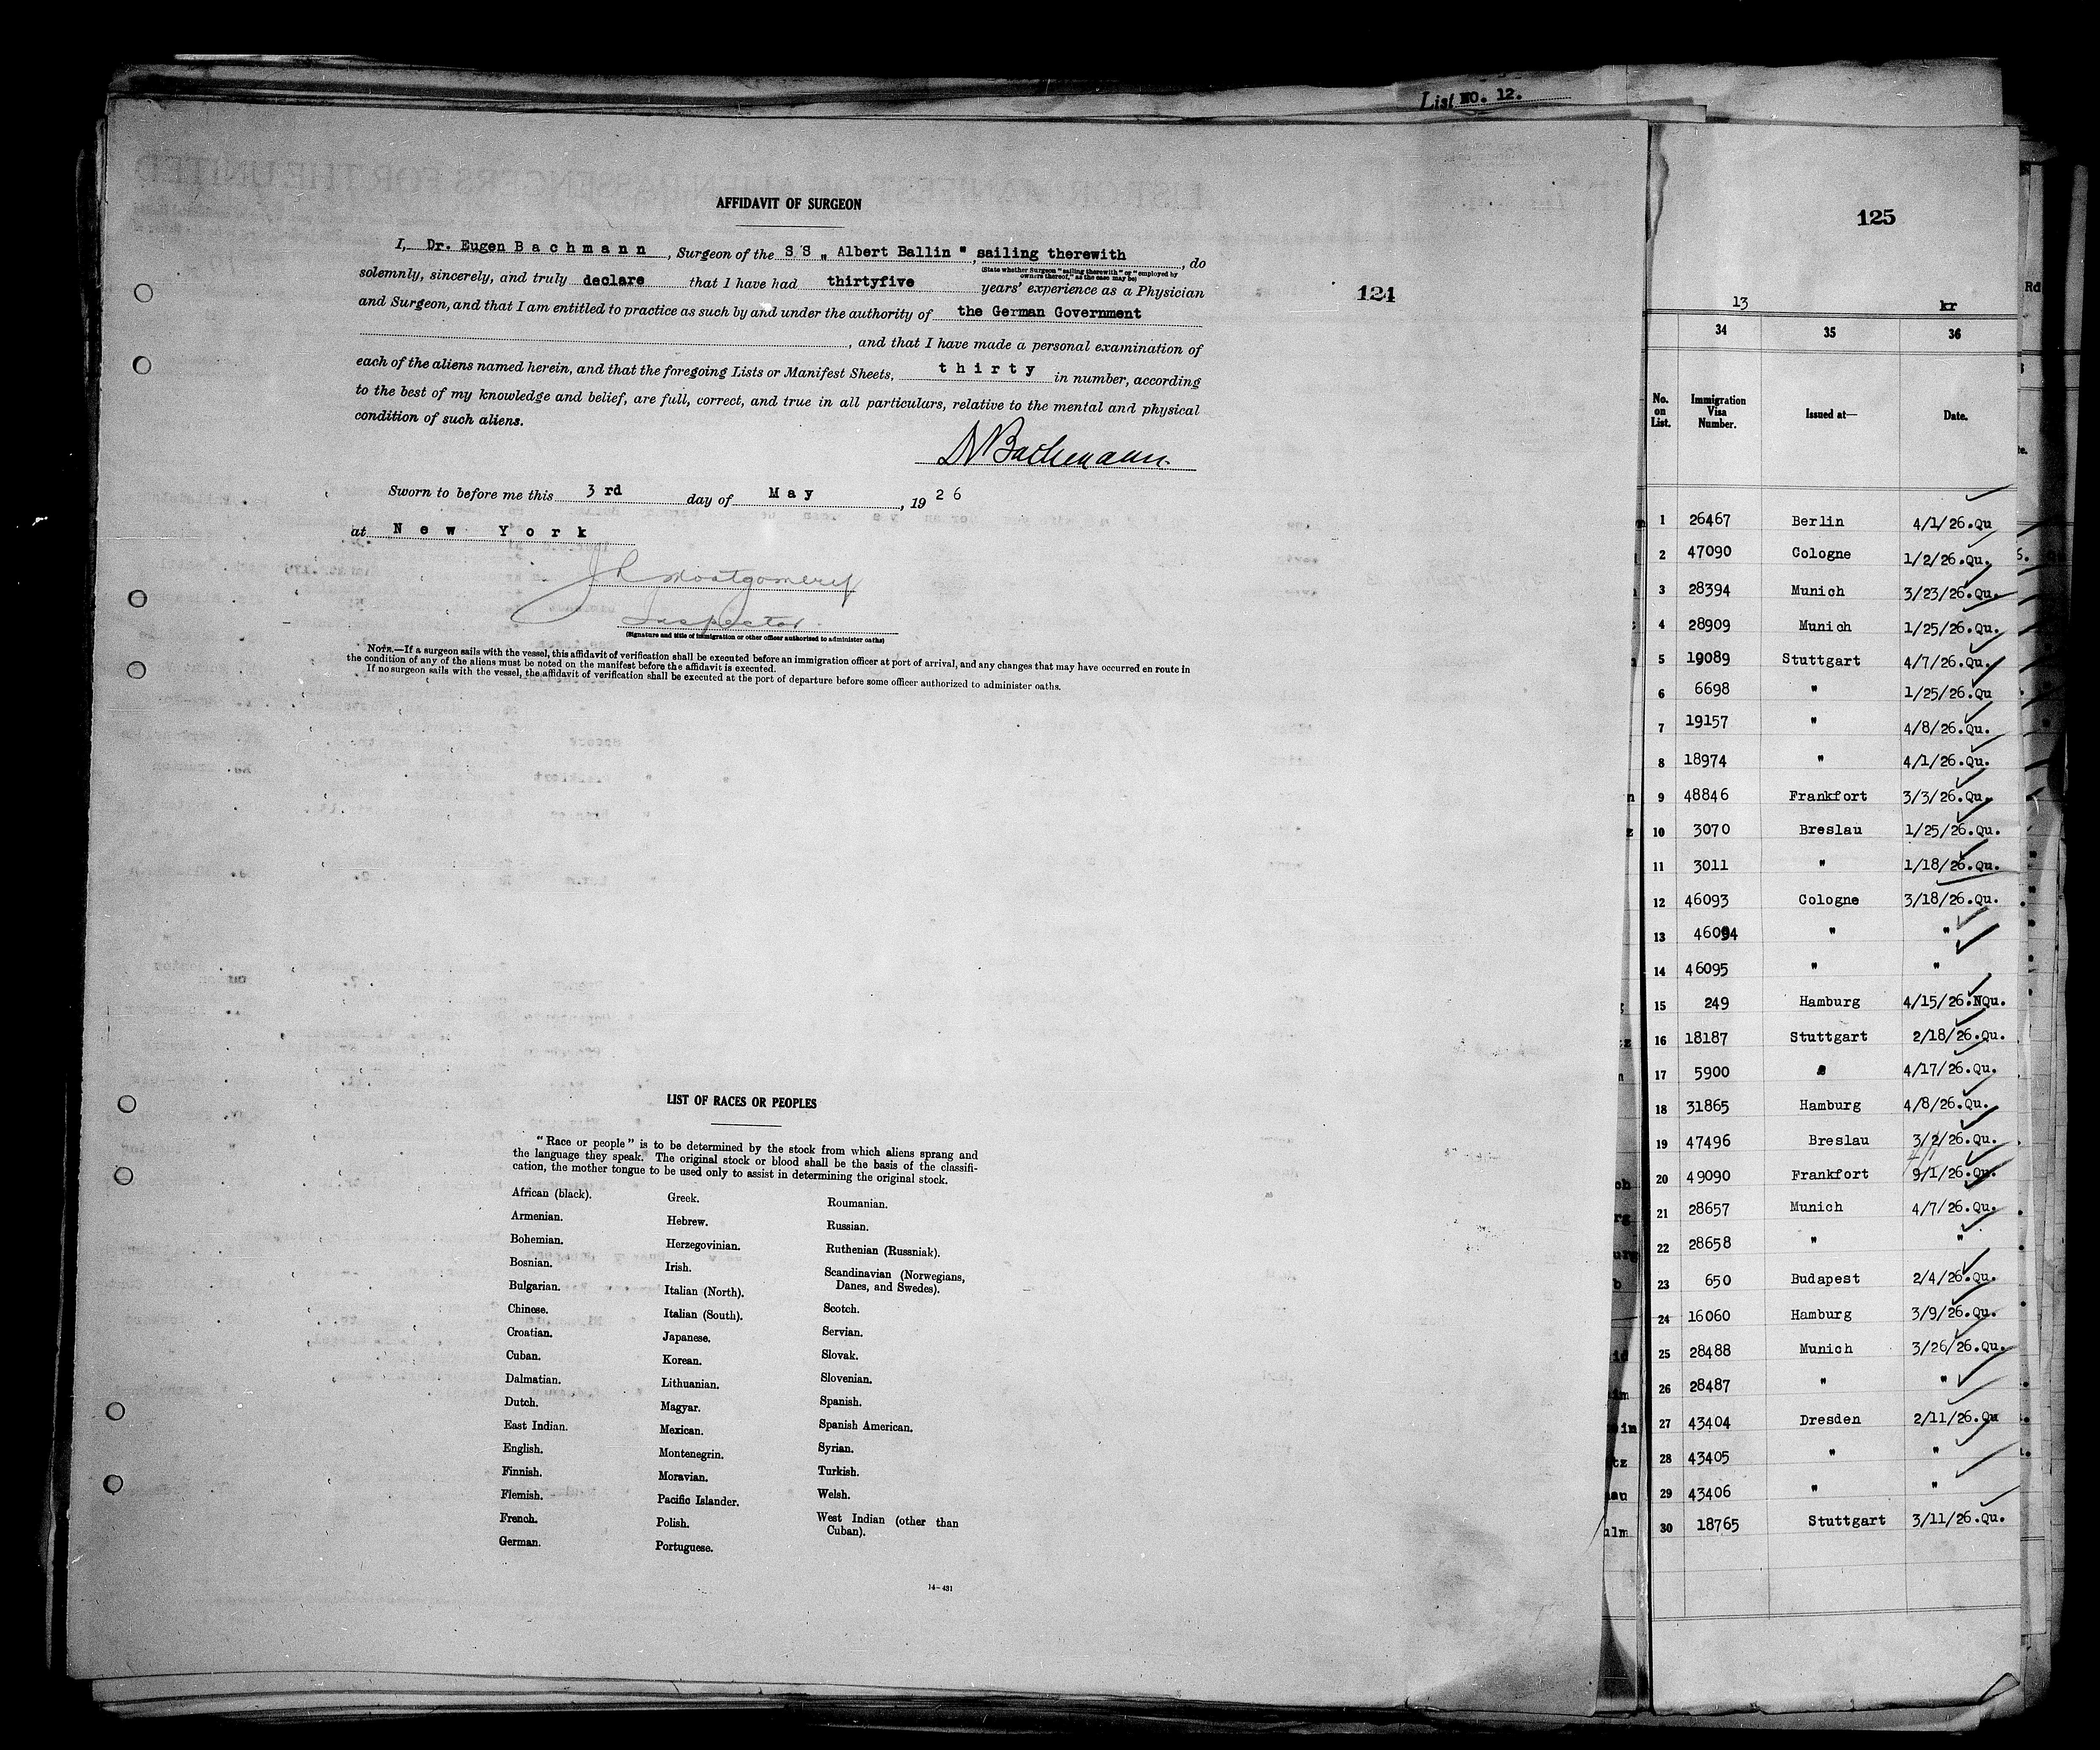 List NO. 12.
AFFIDAVIT OF SURGEON
I, Dr. Eugen B a c h m a n n , Surgeon of the S S „ Albert Ballin " , sailing therewith , do
(State whether Surgeon "sailing therewith" or "employed by owners thereof," as the case may be)
solemnly, sincerely, and truly declare that I have had thirtyfive years' experience as a Physician
and Surgeon, and that I am entitled to practice as such by and under the authority of the German Government
, and that I have made a personal examination of
each of the aliens named herein, and that the foregoing Lists or Manifest Sheets, t h i r t y in number, according
to the best of my knowledge and belief, are full, correct, and true in all particulars, relative to the mental and physical
condition of such aliens.
Dr Bachmann.
Sworn to before me this 3 rd day of M a y , 19 2 6
at N e w Y o r k
Montgomery
Inspector.
(Signature and title of immigration or other officer authorized to administer oaths)
NOTE.—If a surgeon sails with the vessel, this affidavit of verification shall be executed before an immigration officer at port of arrival, and any changes that may have occurred en route in
the condition of any of the aliens must be noted on the manifest before the affidavit is executed.
If no surgeon sails with the vessel, the affidavit of verification shall be executed at the port of departure before some officer authorized to administer oaths.
124
LIST OF RACES OR PEOPLES
"Race or people" is to be determined by the stock from which aliens sprang and
the language they speak. The original stock or blood shall be the basis of the classifi-
cation, the mother tongue to be used only to assist in determining the original stock.
African (black).
Armenian.
Bohemian.
Bosnian.
Bulgarian.
Chinese.
Croatian.
Cuban.
Dalmatian.
Dutch.
East Indian.
English.
Finnish.
Flemish.
French.
German.
Greek.
Hebrew.
Herzegovinian.
Irish.
Italian (North).
Italian (South).
Japanese.
Korean.
Lithuanian.
Magyar.
Mexican.
Montenegrin.
Moravian.
Pacific Islander.
Polish.
Portuguese.
Roumanian.
Russian.
Ruthenian (Russniak).
Scandinavian (Norwegians,
Danes, and Swedes).
Scotch.
Servian.
Slovak.
Slovenian.
Spanish.
Spanish American.
Syrian.
Turkish.
Welsh.
West Indian (other than
Cuban).
14-431
125
13 kr
34 35 36
No. on List. Immigration Visa Number. Issued at— Date.
1 26467 Berlin 4/1/26.Qu
2 47090 Cologne 1/2/26.Qu.
3 28394 Munich 3/23/26.Qu.
4 28909 Munich 1/25/26.Qu.
5 19089 Stuttgart 4/7/26.Qu.
6 6698 " 1/25/26.Qu
7 19157 " 4/8/26.Qu.
8 18974 " 4/1/26.Qu.
9 48846 Frankfort 3/3/26.Qu.
10 3070 Breslau 1/25/26.Qu.
11 3011 " 1/18/26.Qu.
12 46093 Cologne 3/18/26.Qu.
13 46094 " "
14 46095 " "
15 249 Hamburg 4/15/26.NQu.
16 18187 Stuttgart 2/18/26.Qu.
17 5900 4/17/26.Qu.
18 31865 Hamburg 4/8/26.Qu.
19 47496 Breslau 3/2/26.Qu.
20 49090 Frankfort 9/1/26.Qu.
21 28657 Munich 4/7/26.Qu.
22 28658 " "
23 650 Budapest 2/4/26.Qu.
24 16060 Hamburg 3/9/26.Qu.
25 28488 Munich 3/26/26.Qu.
26 28487 " "
27 43404 Dresden 2/11/26.Qu
28 43405 " "
29 43406 " "
30 18765 Stuttgart 3/11/26.Qu.